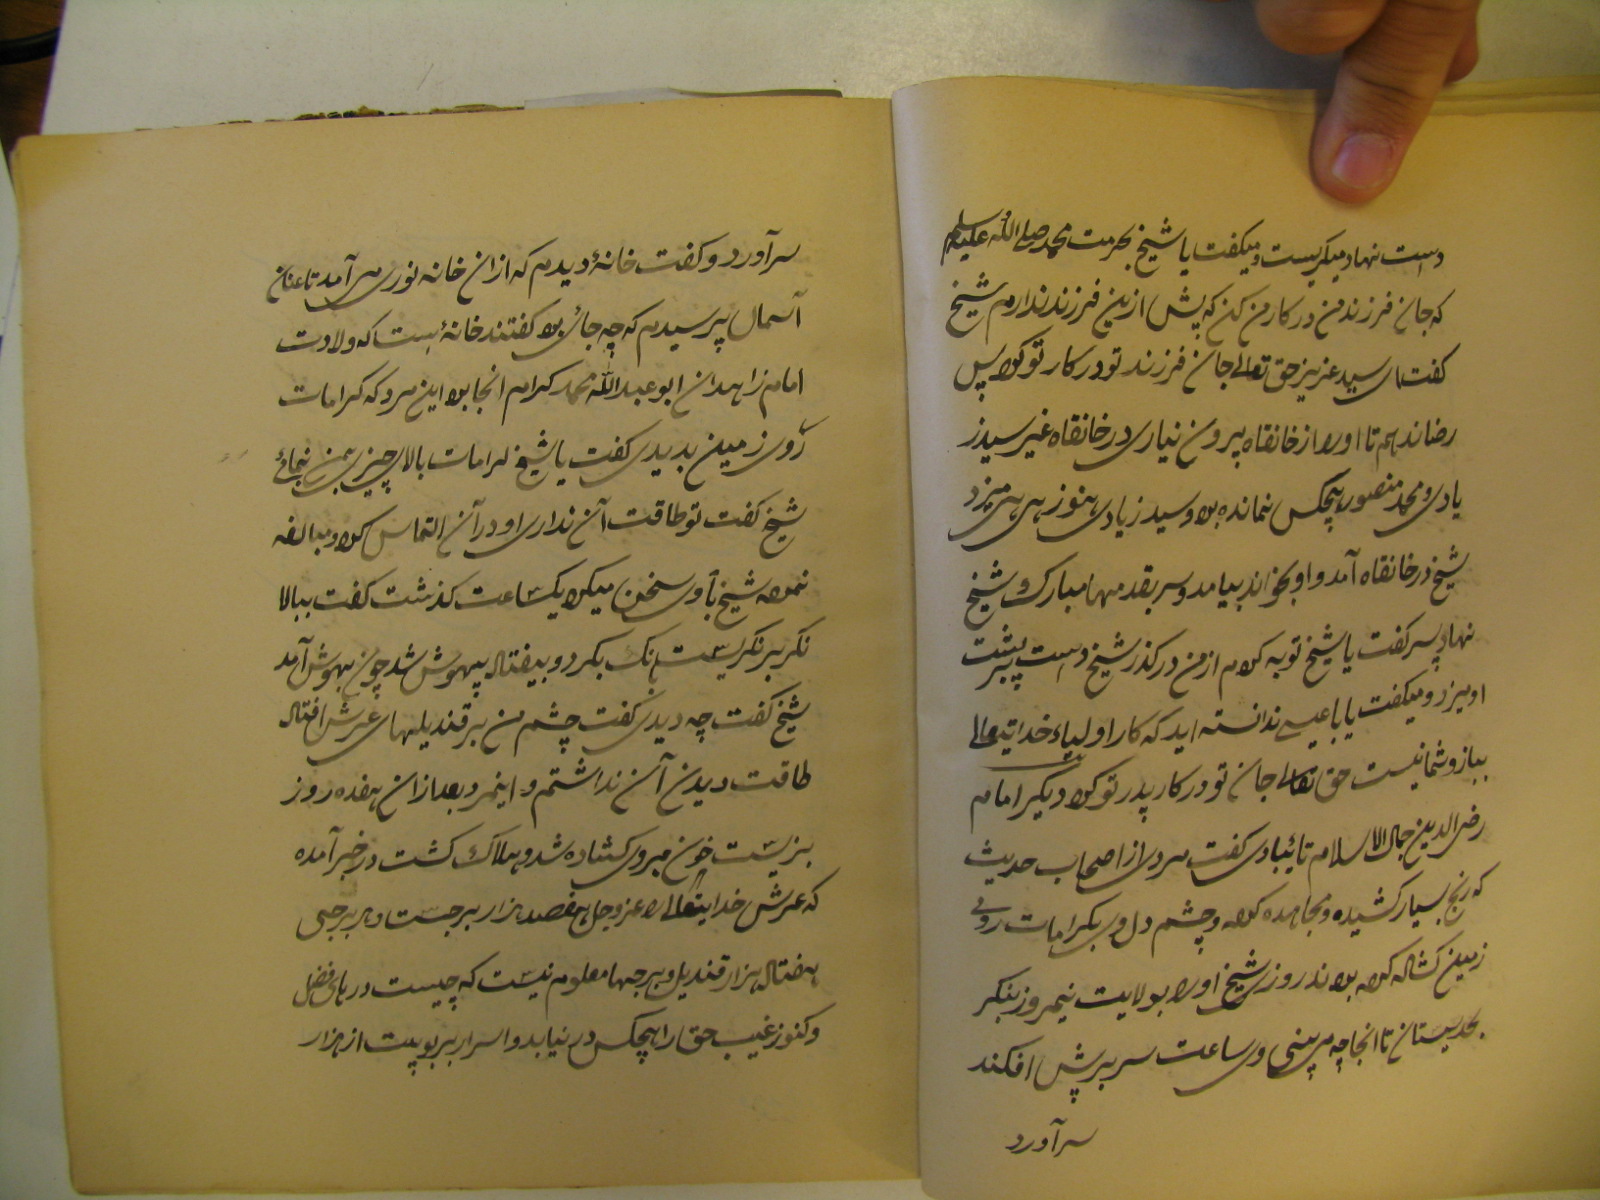 دست نهاد میگریست و میگفت یا شیخ بحرمت محمد صلی الله علیه وسلم
که جان فرزند من در کار من کن که پیش ازین فرزند ندارم شیخ
گفت ای سید عزیز حق تعالی جان فرزند تو در کار تو کرد پس
رضا ندهم تا او را از خانقاه بیرون نیاری در خانقاه غیر سید ز
یادی و محمد منصور هیچکس نمانده بود و سید زیادی هنوز هی هی میزد
شیخ در خانقاه آمد و او بخواند بیامد و سر بقدمها مبارک شیخ
نهاد پسر گفت یا شیخ توبه کردم از من در گذر شیخ دست بر پشت
او میزد و میگفت یا با عیسی ندانسته اید که کار اولیاء خدایتعالی
ببازو شما نیست حق تعالی جان تو در کار پدر تو کرد دیگر امام
رضی الدین جمال الاسلام تائبادی گفت مردی از اصحاب حدیث
که رنج بسیار کشیده و مجاهده کرده و چشم دل وی بکرامات روی
زمین گشاده کرده بودند روزی شیخ او را بولایت نیمروز بنگر
بحدسیستان تا آنجا چه می بینی وی ساعت سر در پیش افکند
سر آورد
سر آورد و گفت خانهٔ دیدم که از ان خانه نوری می آمد تا عنان
آسمان پرسیدم که چه جائی بود گفتند خانهٔ است که ولادت
امام زاهدان ابو عبد الله محمد کرام انجا بود این مرد که کرامات
روی زمین بدیدی گفت یا شیخ کرامات بالای چیزی بمن بنمائے
شیخ گفت تو طاقت آن نداری او در آن التماس کرد و مبالغه
نمود شیخ با وی سخن میکرد یکساعت گذشت گفت ببالا
نگر بر نگریست بانک بکرد و بیفتاد بیهوش شد چون بهوش آمد
شیخ گفت چه دیدی گفت چشم من بر قندیلهای عرش افتاد
طاقت دیدن آن نداشتم و اینمرد بعد ازان هفده روز
بزیست خون بروی گشاده شد و هلاک گشت در خبر آمده
که عرش خدایتعالی را عز و جل هفصد هزار برجست و هر برجی
هفتاد هزار قندیل و برجها معلوم نیست که چیست دریای فضل
و کنوز غیب حق را هیچکس در نیابد و اسرار ربوبیت از هزار